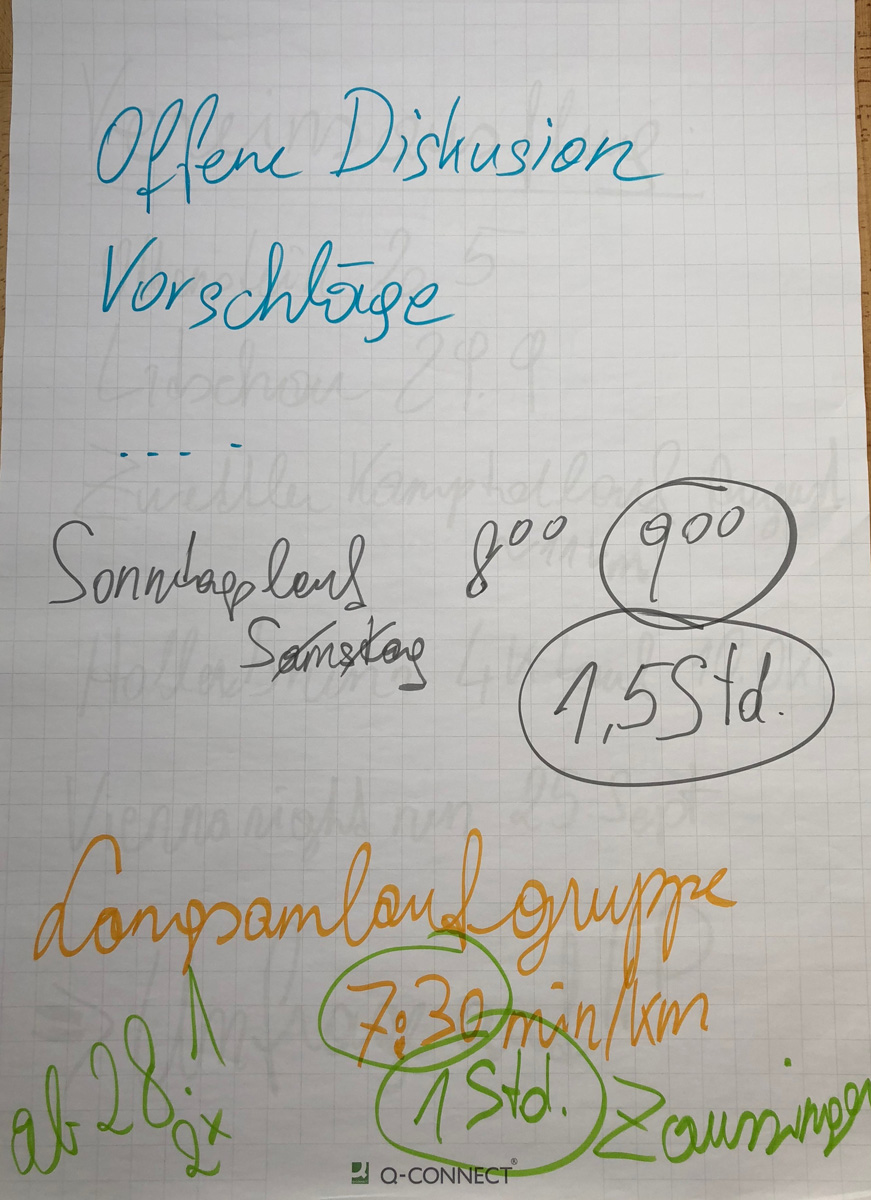 Offene Diskusion
Vorschläge
.... 
Sonntagslauf 8⁰⁰ 9⁰⁰
Samstag
1,5 Std.
Langsamlaufgruppe
7:30 min/km
ab 28.1
2x
1 Std.
Q-CONNECT®